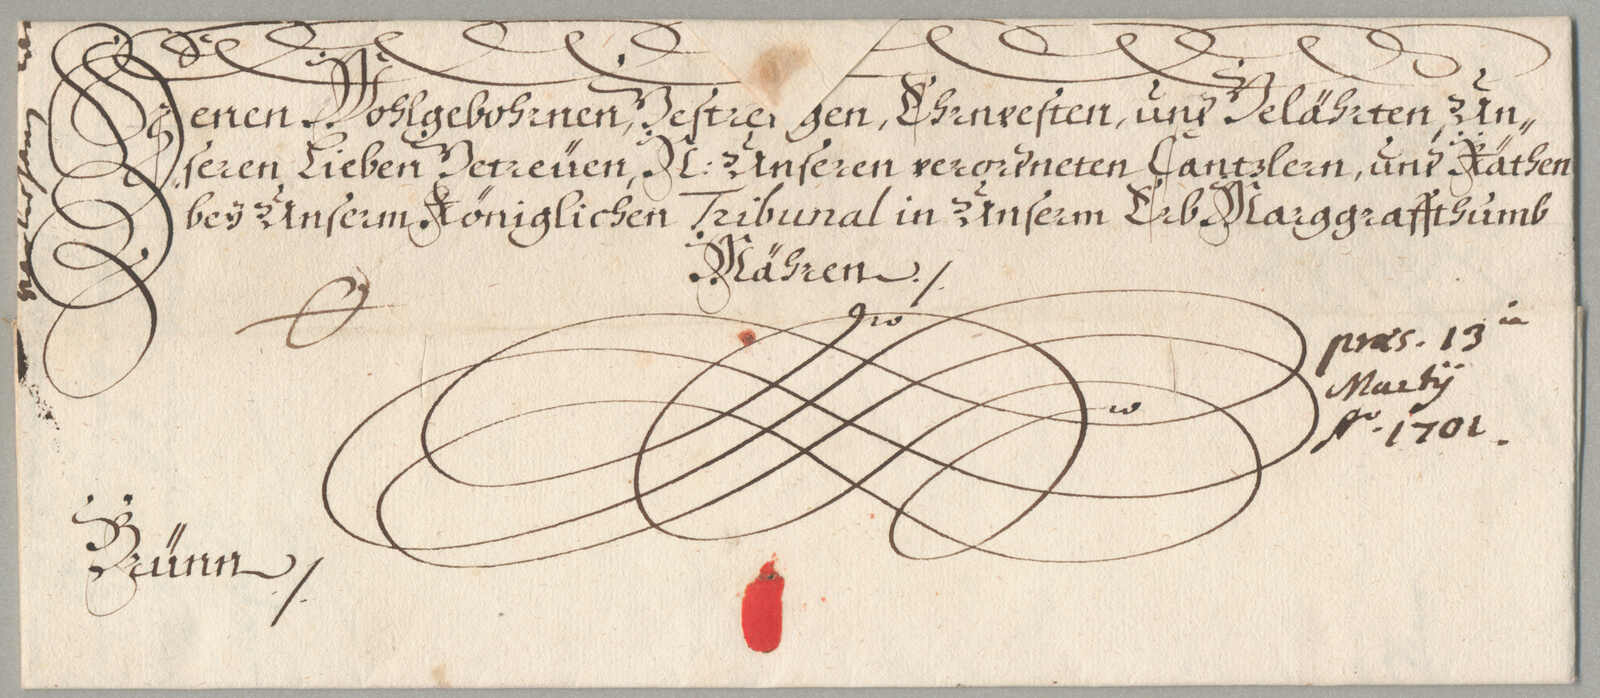 Denen Wohlgebohrnen, Gestrengen, Ehrnvesten, und Gelährten, Un„
seren Lieben Getreüen, N: Unseren verordneten Cantzlern, und Räthen
bey Unserm Königlichen Tribunal in Unserm Erb Marggraffthumb
Mähren ./.
præs. 13 ia
Martij
Ao. 1701.
Brünn ./.